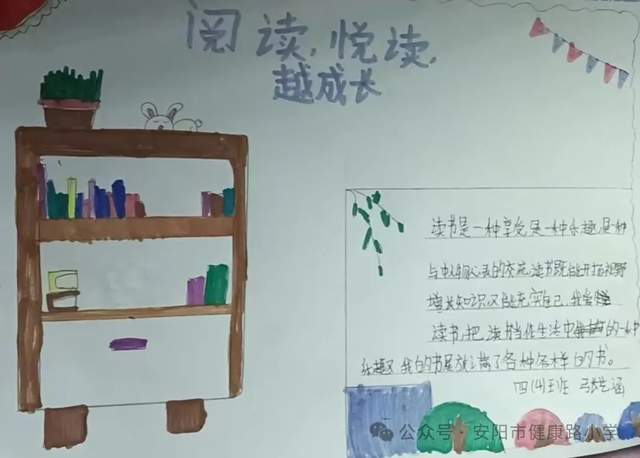 阅读,悦读,
越成长
读书是一种享受,是一种乐趣,是种
与也们心灵的交流,读书既能开拓视野
增长知识,又能充实自己,我尝
读书,把读书当作生活中的一种
乐趣。我的书屋放满了各种各样的书。
四(4)班 张艺涵
公众号·安阳市健康路小学